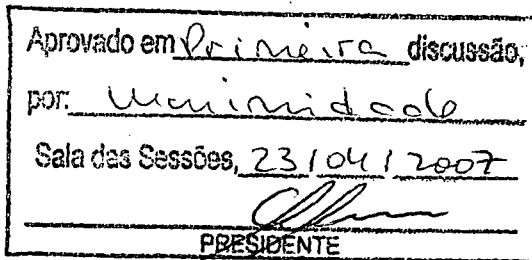 Aprovado em Primeira discussão,
por: Unanimidade
Sala das Sessões, 23/04/2007
PRESIDENTE